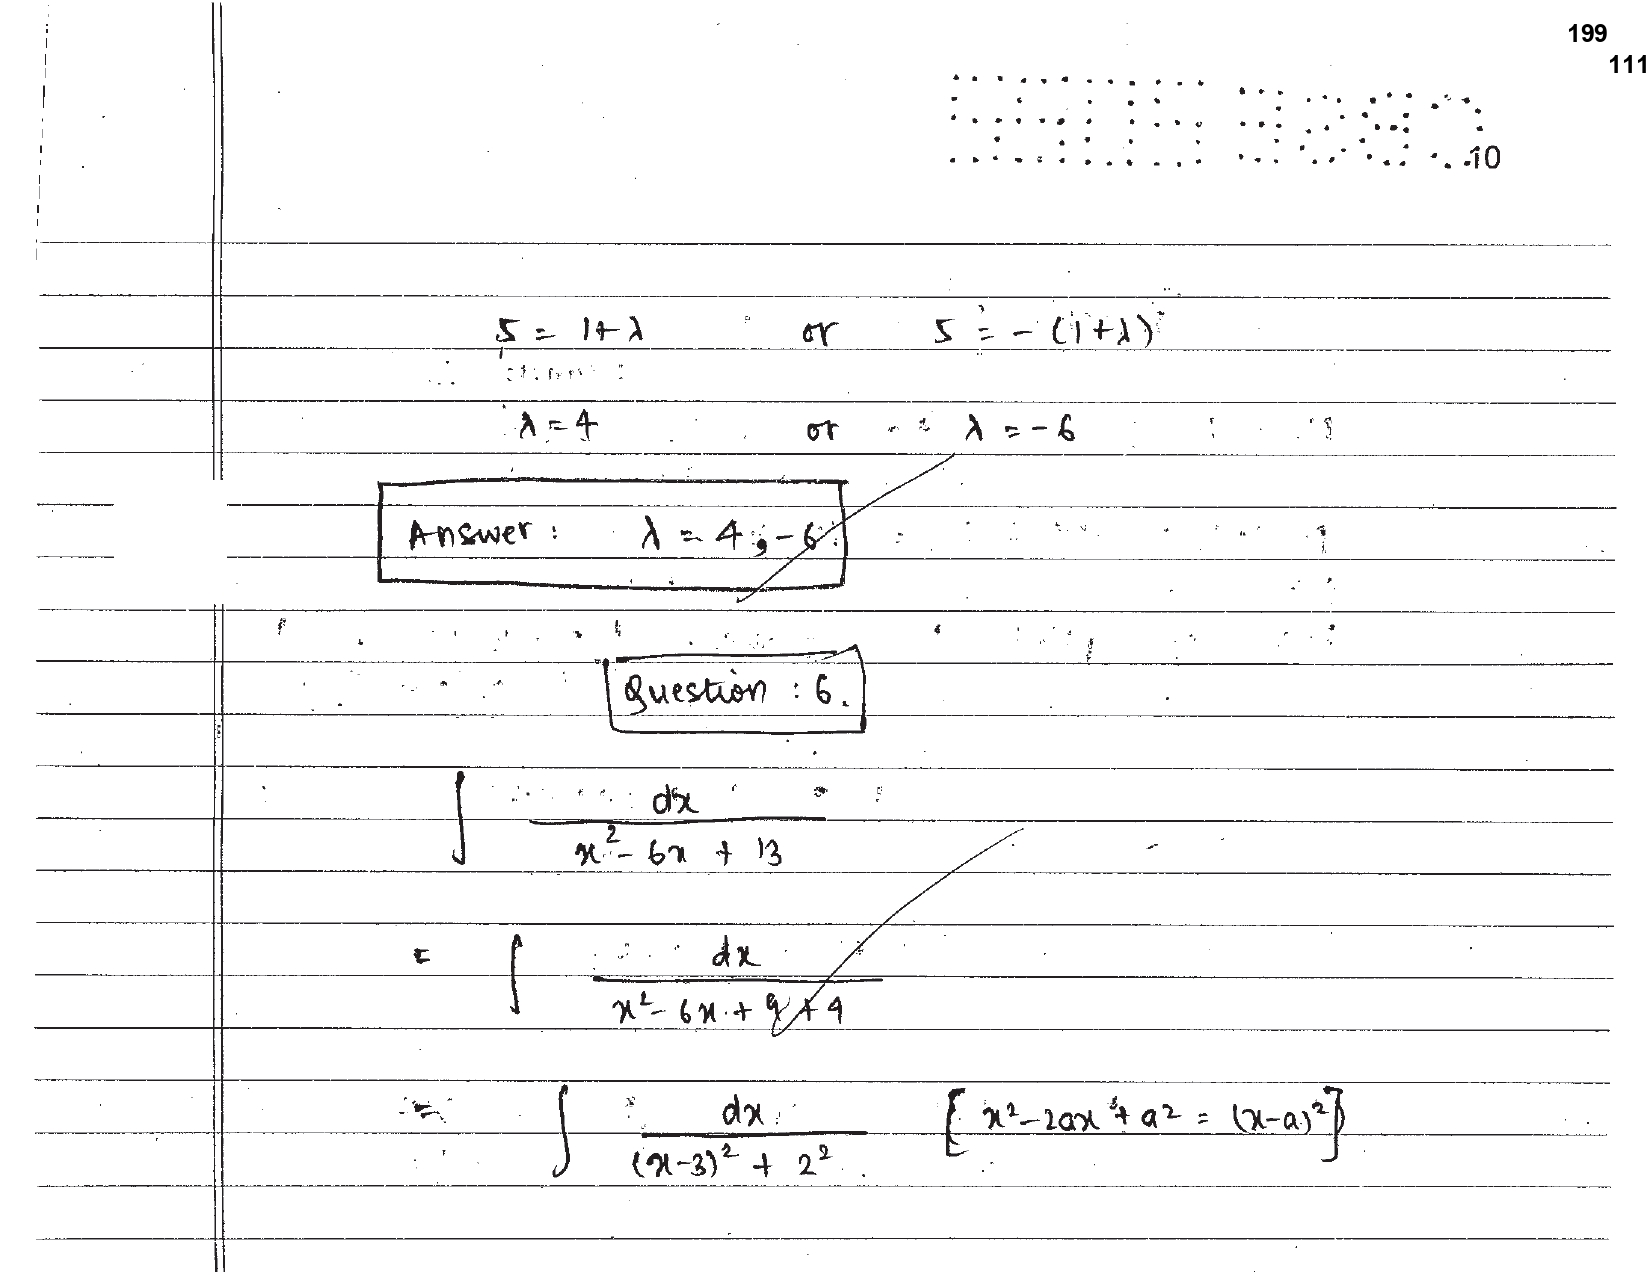 199
111
10
5 = 1+λ or 5 = -(1+λ)
λ = 4 or λ = -6
Answer: λ = 4, -6.
Question : 6.
∫ dx / (x² - 6x + 13)
= ∫ dx / (x² - 6x + 9 + 4)
= ∫ dx / ((x-3)² + 2²) [x² - 2ax + a² = (x-a)²]